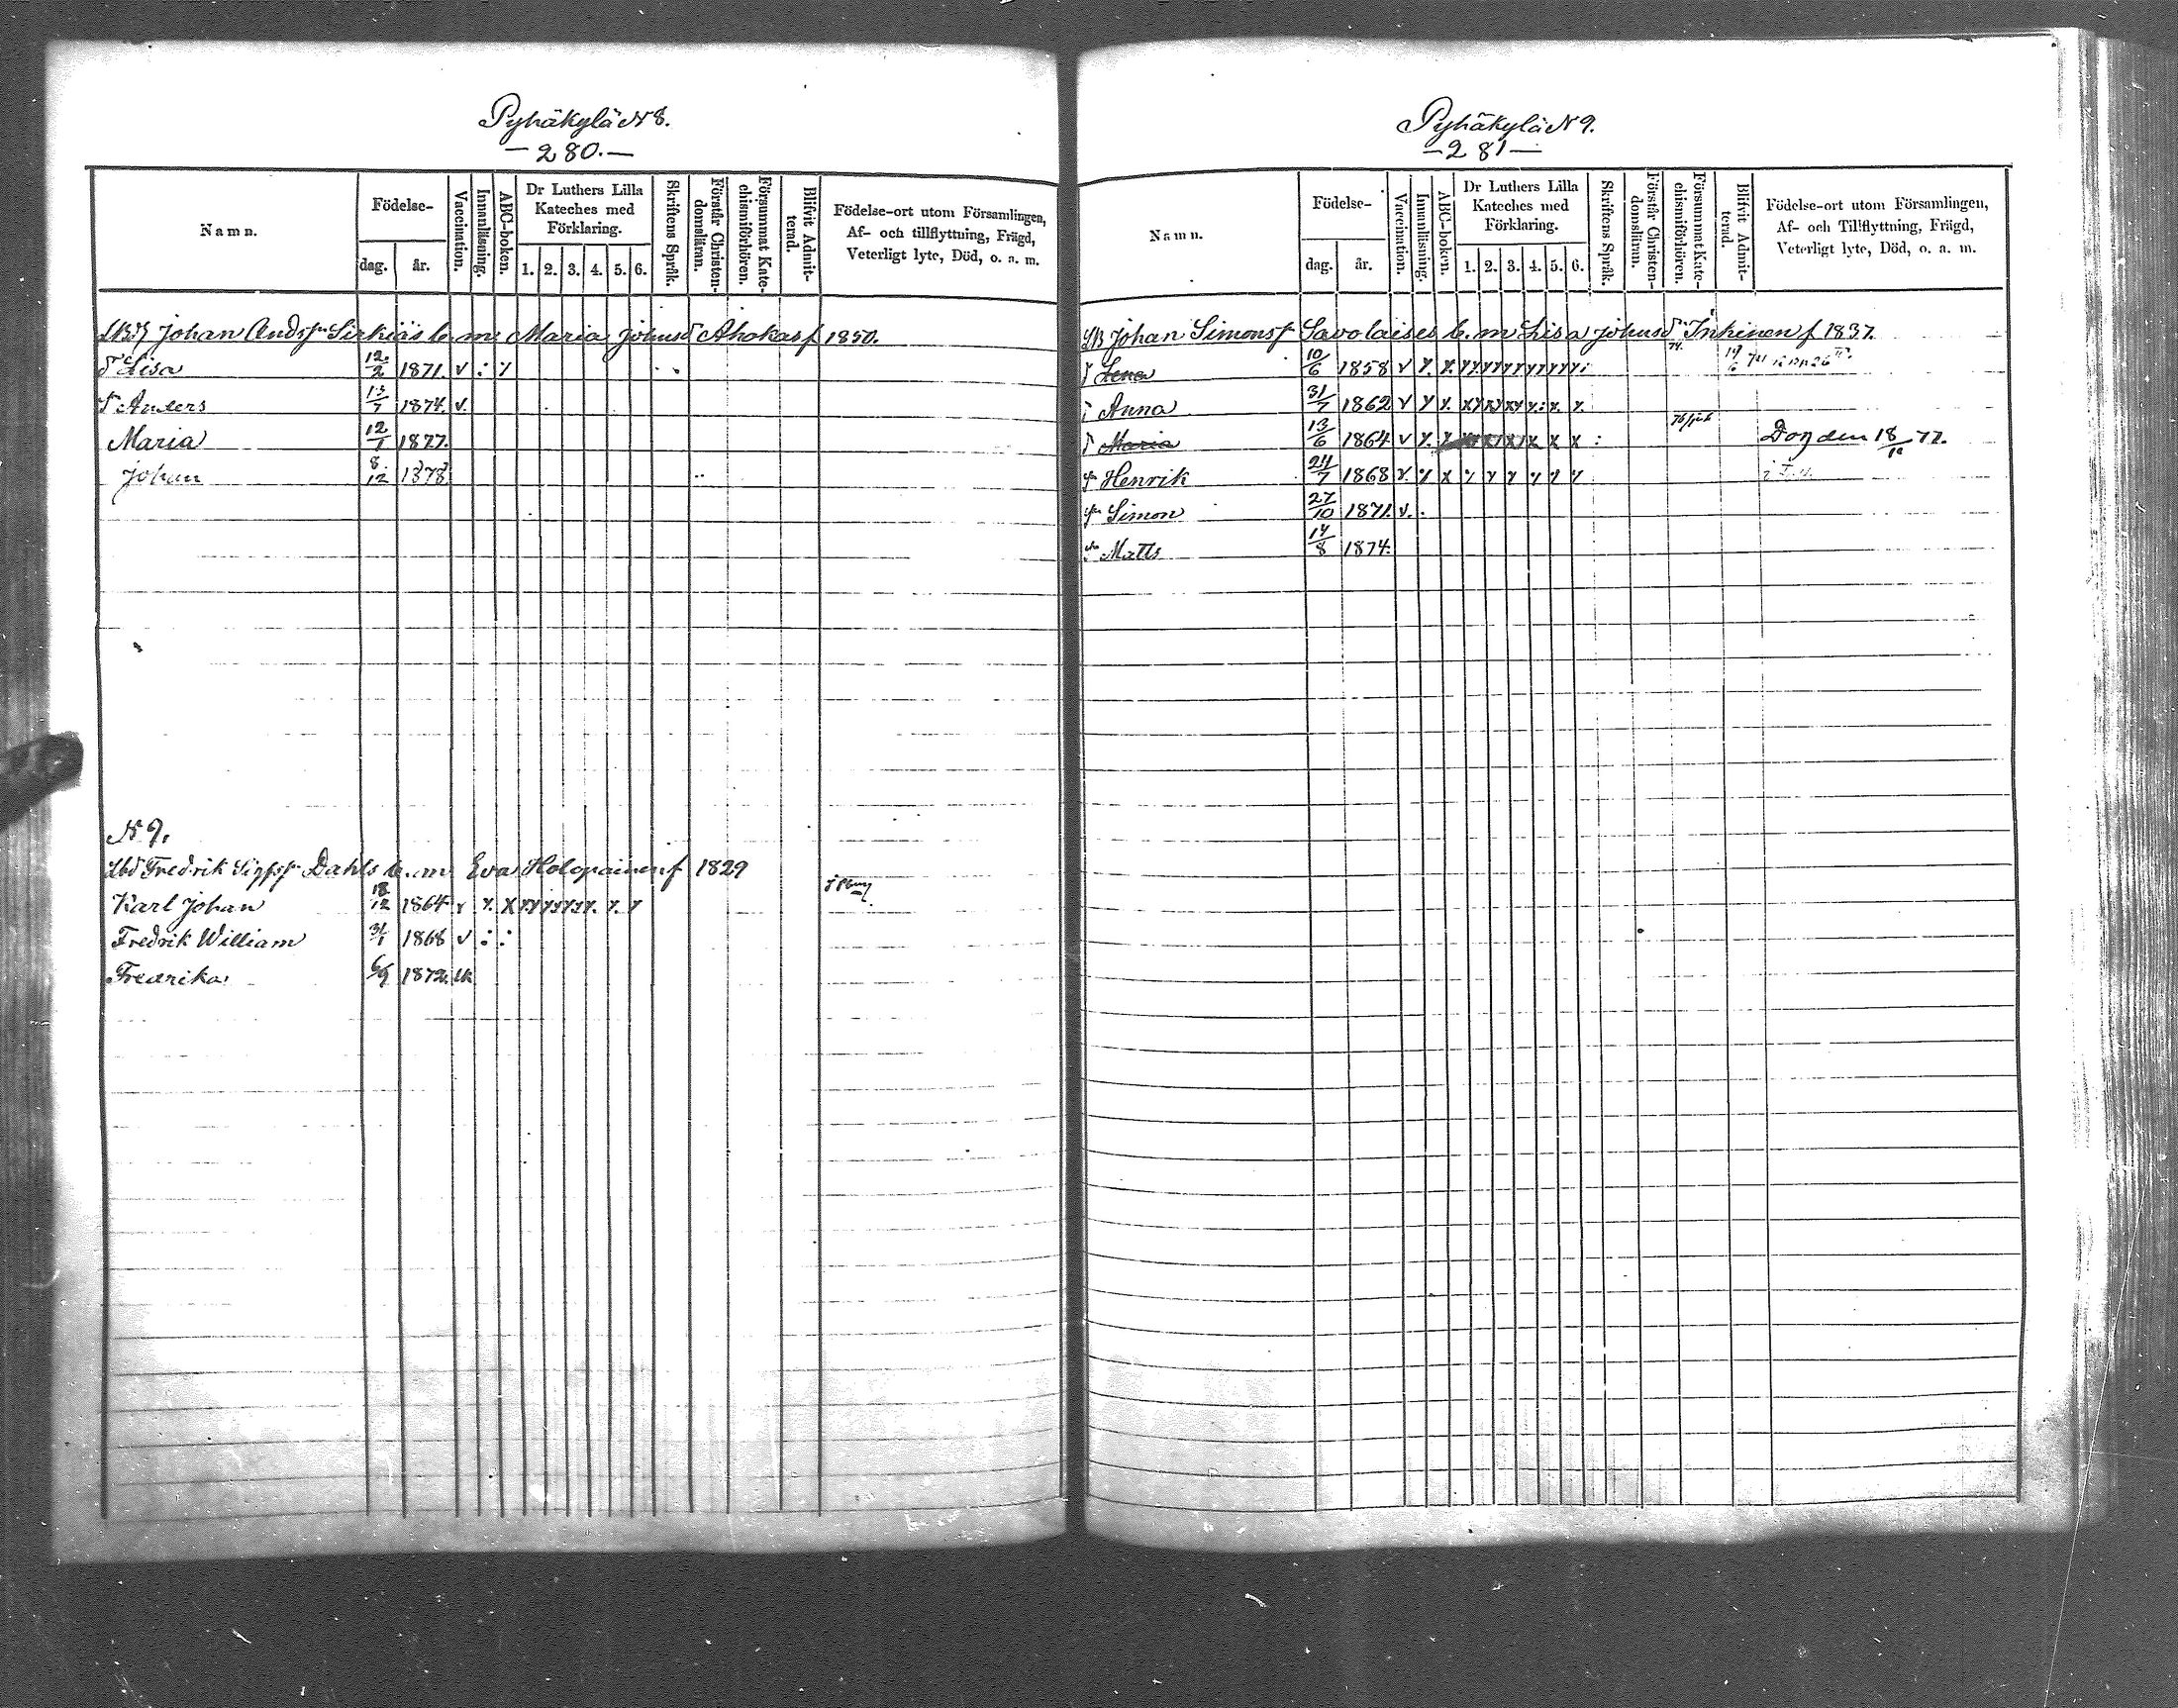 Pyhäkylä N 8.
— 280. —
Namn.
Födelse-
dag.
år.
Vaccination.
Innanläsning.
ABC-boken.
Dr Luthers Lilla
Kateches med
Förklaring.
1. 2. 3. 4. 5. 6.
Skriftens Språk.
Förstår Christen-
domsläran.
Försummat Kate-
chismiförhören.
Blifvit Admit-
terad.
Födelse-ort utom Församlingen,
Af- och tillflyttning, Frägd,
Veterligt lyte, Död, o. a. m.
Johan Andsn Sirkiäs b. m. Maria Johnsd Ahokas f 1850.
Lisa 12/2 1871. v
Anders 13/7 1874. v.
Maria 12/1 1877.
Johan 8/12 1878
N 9.
Fredrik Dahls b. m. Eva Holopainen f 1829
Karl Johan 18/12 1864
Fredrik William 31/1 1868 v
Fredrika 6/9 1872.
Pyhäkylä N 9.
— 281 —
Namn.
Födelse-
dag.
år.
Vaccination.
Innanläsning.
ABC-boken.
Dr Luthers Lilla
Kateches med
Förklaring.
1. 2. 3. 4. 5. 6.
Skriftens Språk.
Förstår Christen-
domsläran.
Försummat Kate-
chismiförhören.
Blifvit Admit-
terad.
Födelse-ort utom Församlingen,
Af- och Tillflyttning, Frägd,
Veterligt lyte, Död, o. a. m.
Johan Simonsn Savolaises b. m Lisa Johnsd Inkinen f 1837.
Lena 10/6 1858 v 74.
Anna 31/7 1862 v
Maria 13/6 1864 v Dog den 18/10 77.
Henrik 24/7 1868
Simon 27/10 1871. v.
Matts 14/8 1874.